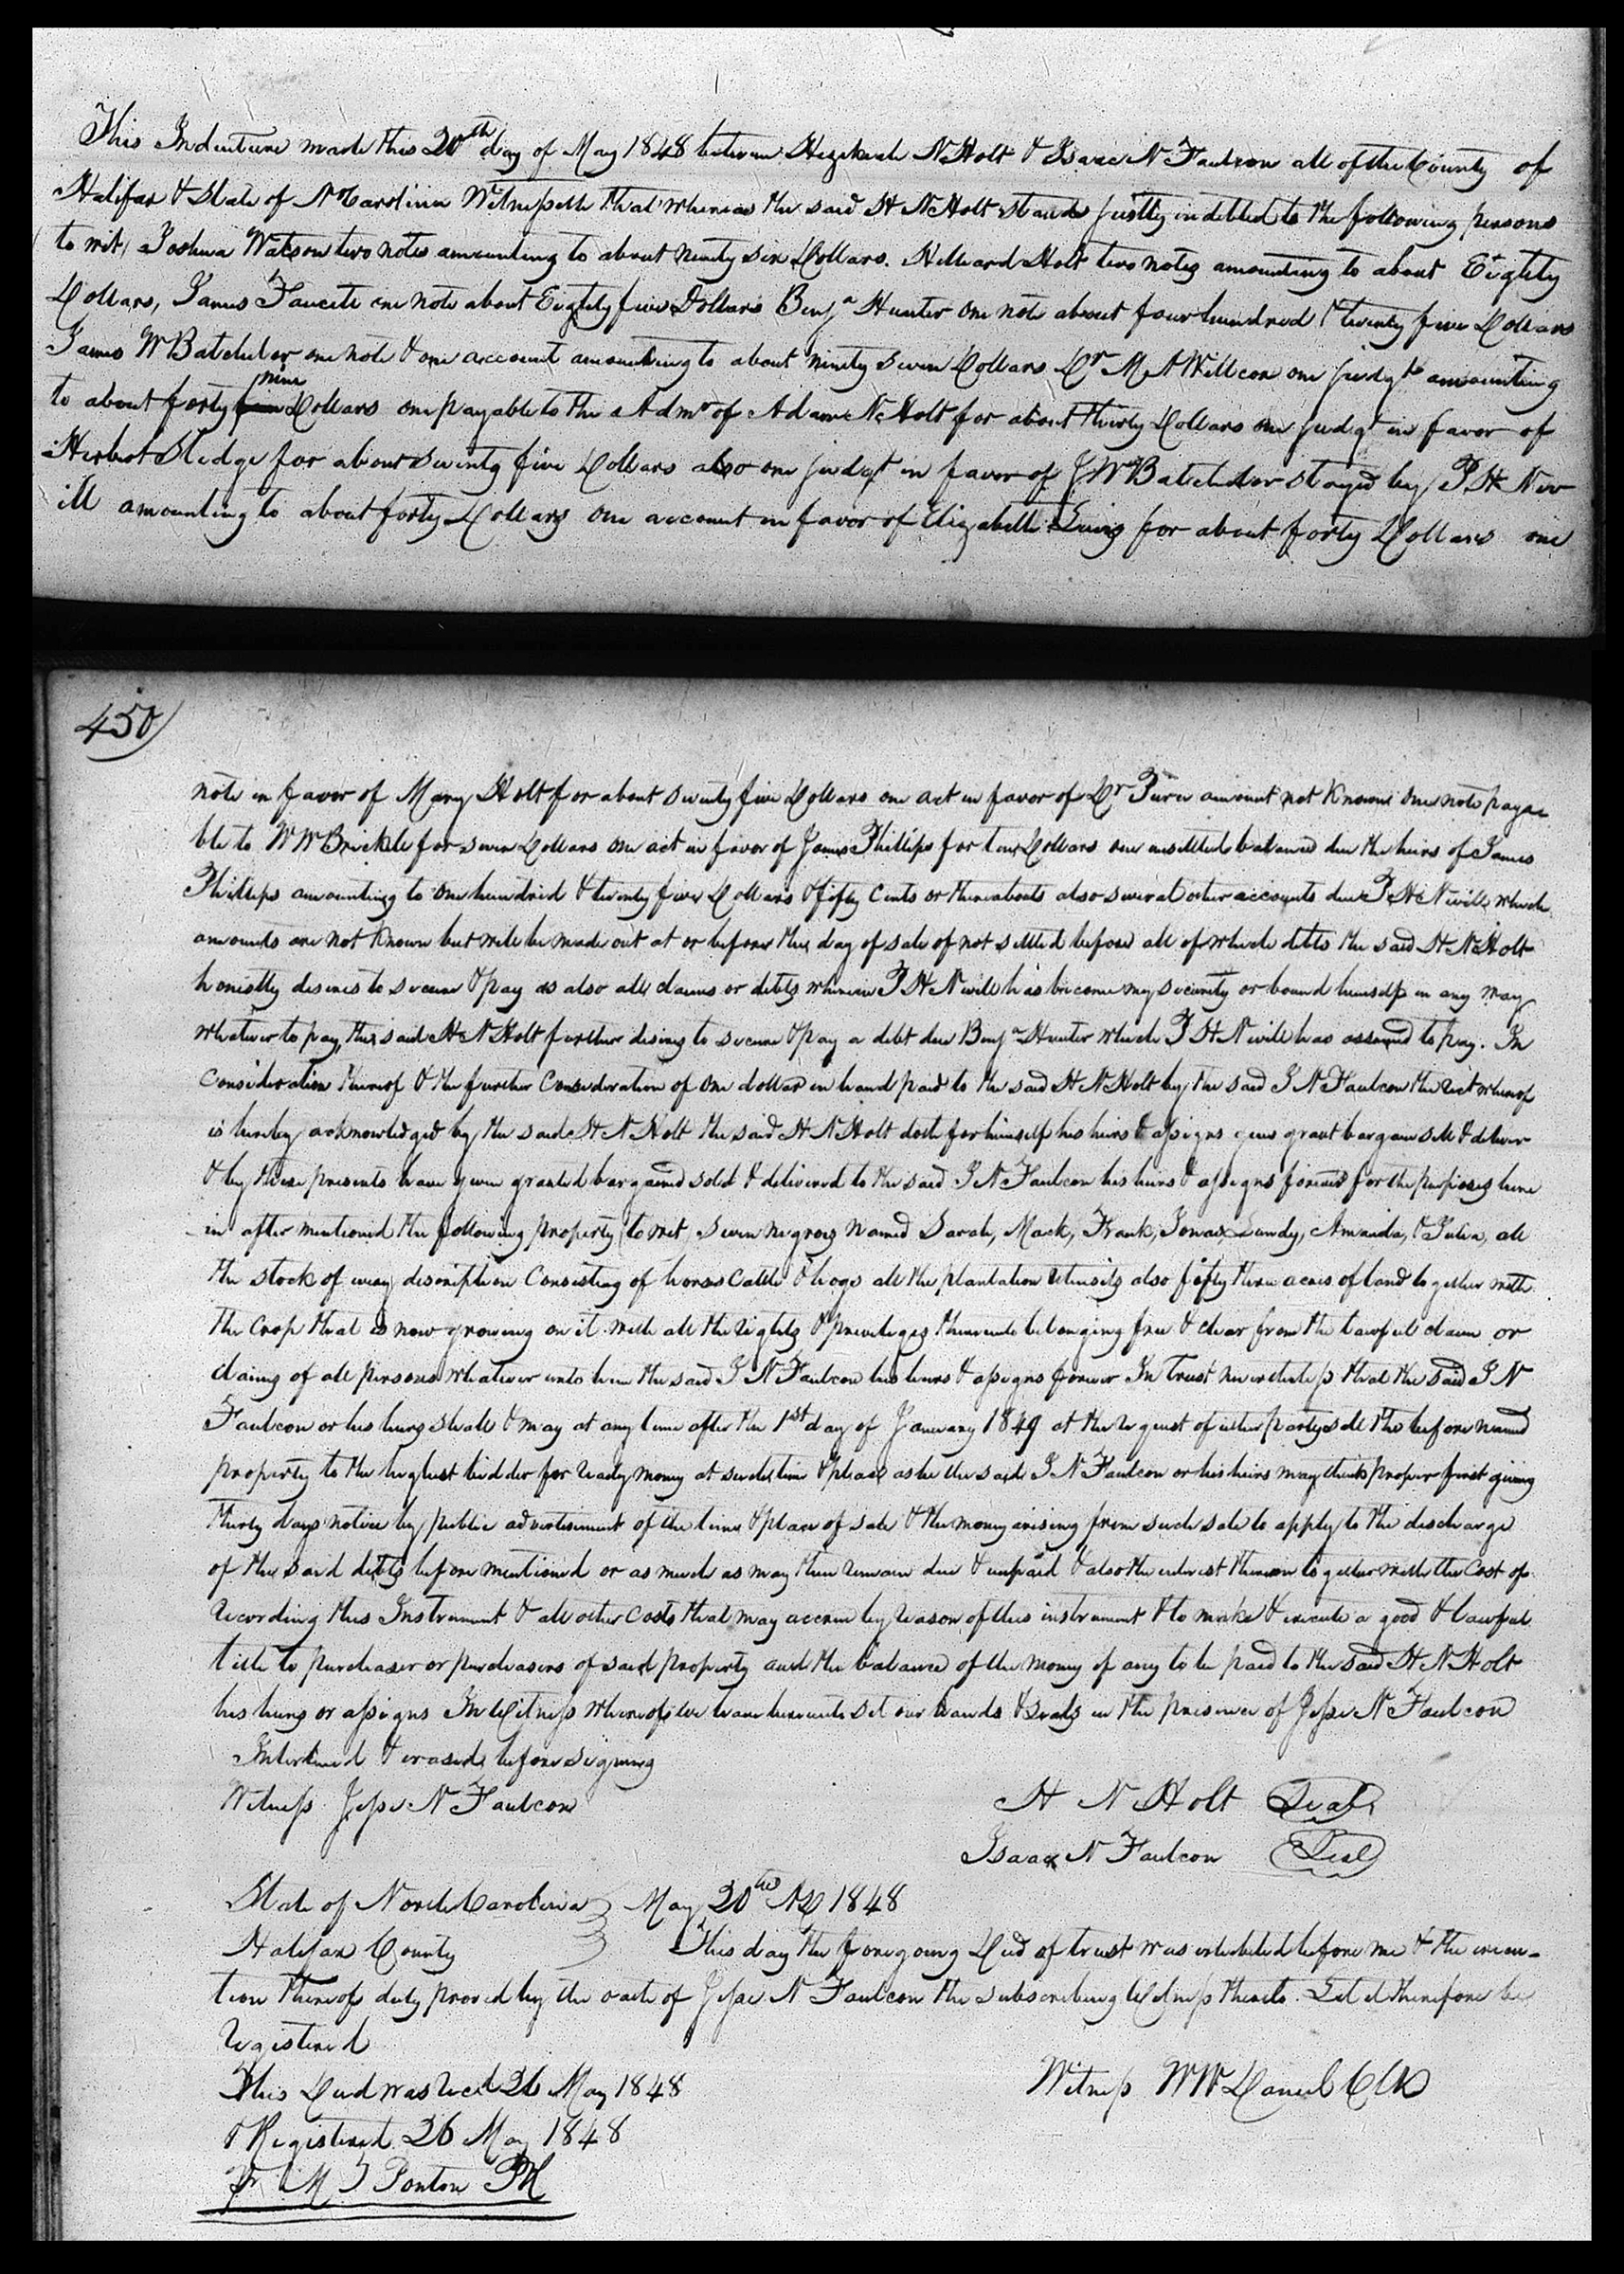 This Indenture made this 20th day of May 1848 between Hezekiah N Holt & Isaac N Faulcon all of the County of
Halifax & State of N Carolina Witnesseth that whereas the said H N Holt stands justly indebted to the following persons
to wit, Joshua Watson two notes amounting to about ninety six Dollars. Hilliard Holt two notes amounting to about Eighty
Dollars, James Faucett one note about Eighty five Dollars Benja Hunter one note about four hundred & twenty five Dollars
James W Batchelor one note & one account amounting to about ninety seven Dollars Dr M A Willcox one judgt amounting
to about forty nine Dollars one payable to the Admr of Adam N Holt for about thirty Dollars one judgt in favor of
Herbert Sledge for about seventy five Dollars also one judgt in favor of J W Batchelor stayed by T H Nev
ill amounting to about forty Dollars one account in favor of Elizabeth for about forty Dollars one
450
note in favor of Mary Holt for about seventy five Dollars one act in favor of Dr amount not known one note paya
ble to W W Brickle for seven Dollars one act in favor of James Phillips for Dollars one unsettled balance due the heirs of James
Phillips amounting to one hundred & twenty five Dollars & fifty Cents or thereabouts also several other accounts due T H Nevill which
amounts are not known but will be made out at or before the day of sale if not settled before all of which debts the said H N Holt
honestly desires to secure & pay as also all claims or debts wherein T H Nevill has become my security or bound himself in any way
whatever to pay, the said H N Holt further desires to secure & pay a debt due Benja Hunter which T H Nevill has assumed to pay. In
Consideration thereof & the further Consideration of one dollar in hand paid to the said H N Holt by the said I N Faulcon the rect whereof
is hereby acknowledged by the said H N Holt the said H N Holt doth for himself his heirs & assigns give grant bargain sell & deliver
& by these presents have given granted bargained sold & delivered to the said I N Faulcon his heirs & assigns forever for the purposes here
in after mentioned the following property (to wit, seven negroes named Sarah, Mack, Frank, Jonas, Lundy, Amanda, & Julia, all
the stock of every description Consisting of horses Cattle & hogs all the plantation utensils also fifty three acres of land together with
the Crop that is now growing on it with all the rights & privileges thereunto belonging free & clear from the lawful claim or
claims of all persons whatever unto him the said I N Faulcon his heirs & assigns forever In trust nevertheless that the said I N
Faulcon or his heirs shall & may at any time after the 1st day of January 1849 at the request of either party sell the before named
property to the highest bidder for ready money at such time & place as he the said I N Faulcon or his heirs may think proper first giving
thirty days notice by public advertisement of the time & place of sale & the money arising from such sale to apply to the discharge
of the said debts before mentioned or as much as may then remain due & unpaid & also the interest thereon together with the Cost of
recording this Instrument & all other Costs that may accrue by reason of this instrument & to make & execute a good & lawful
title to purchaser or purchasers of said property and the balance of the money if any to be paid to the said H N Holt
his heirs or assigns In Witness whereof we have hereunto set our hands & seals in the presence of Jesse N Faulcon
Interlined & erased before signing
Witness Jesse N Faulcon
H N Holt Seal
Isaac N Faulcon Seal
State of North Carolina } May 20th AD 1848
Halifax County } This day the foregoing Deed of trust was exhibited before me & the execu-
tion thereof duly proved by the oath of Jesse N Faulcon the subscribing Witness thereto. Let it therefore be
registered
This Deed was recd 26 May 1848
Witness W W Daniel Clk
& Registered 26 May 1848
Pr M T Ponton PR